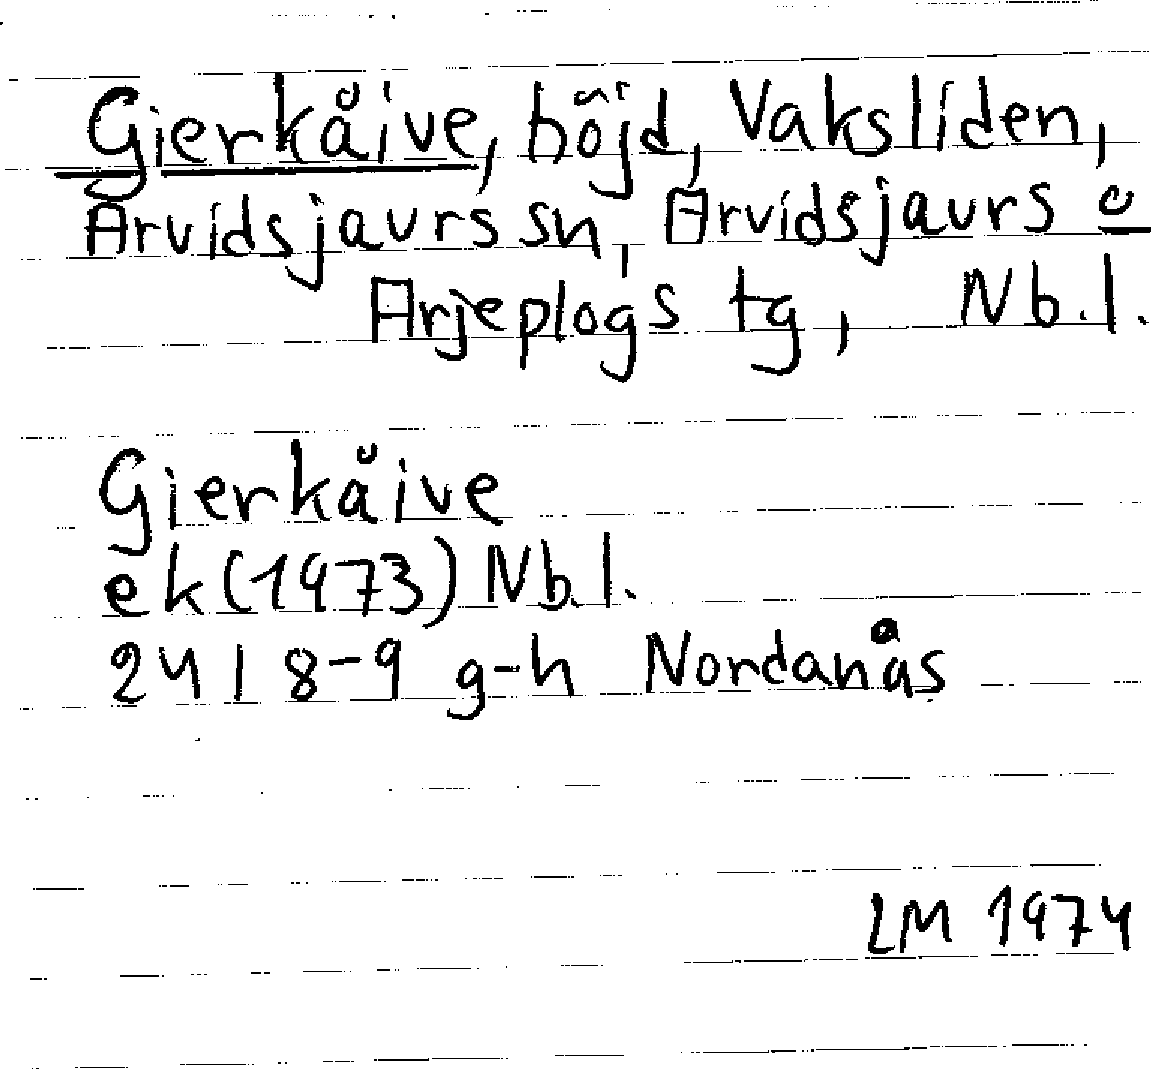 Gierkåive, höjd, Vaksliden,
Arvidsjaurs sn, Arvidsjaurs o
Arjeplogs tg, Nb.l.
Gierkåive
ek (1973) Nb.l.
24 I 8-9 g-h Nordanås
LM 1974